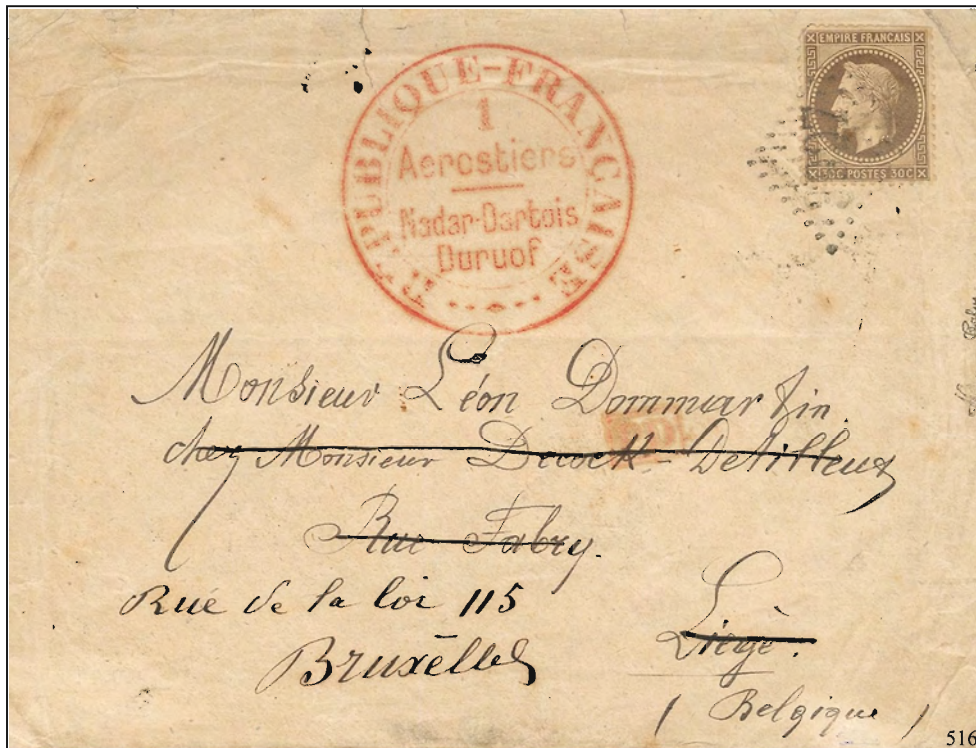 EMPIRE FRANÇAIS
30C POSTES 30C
RÉPUBLIQUE-FRANÇAISE
1
Aerostiers
Nadar-Dartois
Duruof
PD
Monsieur Léon Dommartin.
chez Monsieur
Rue Fabry.
Liège.
Rue de la loi 115
Bruxelles
(Belgique)
516